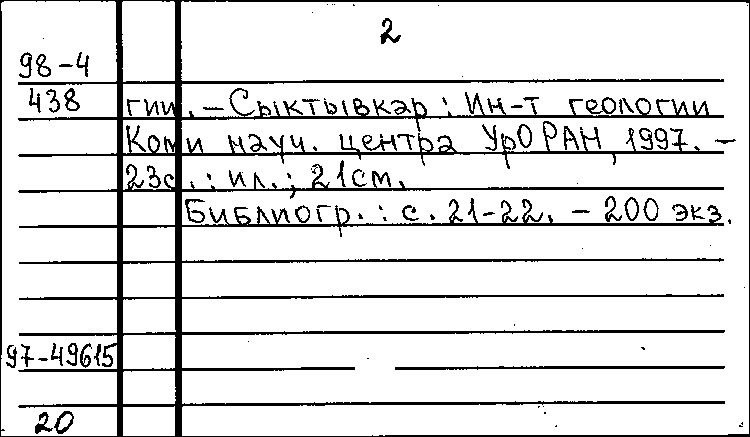 2
98-4
438 гии. - Сыктывкар : Ин-т геологии
Коми науч. центра УрО РАН, 1997. -
23с. : ил. ; 21см.
Библиогр. : с. 21-22. - 200 экз.
97-49615
20